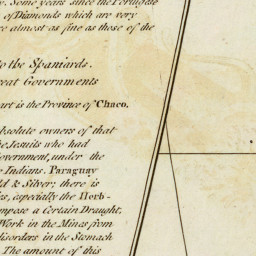 Some years since the Portugese
of Diamonds which are very
re almost as fine as those of the
to the Spaniards.
reat Governments
art is the Province of Chaco.
bsolute owners of that
he Jesuits who had
overnment, under the
e Indians. Paraguay
ld & Silver; there is
es, especially the Herb-
mpose a Certain Draught,
Work in the Mines from
disorders in the Stomach
The amount of this